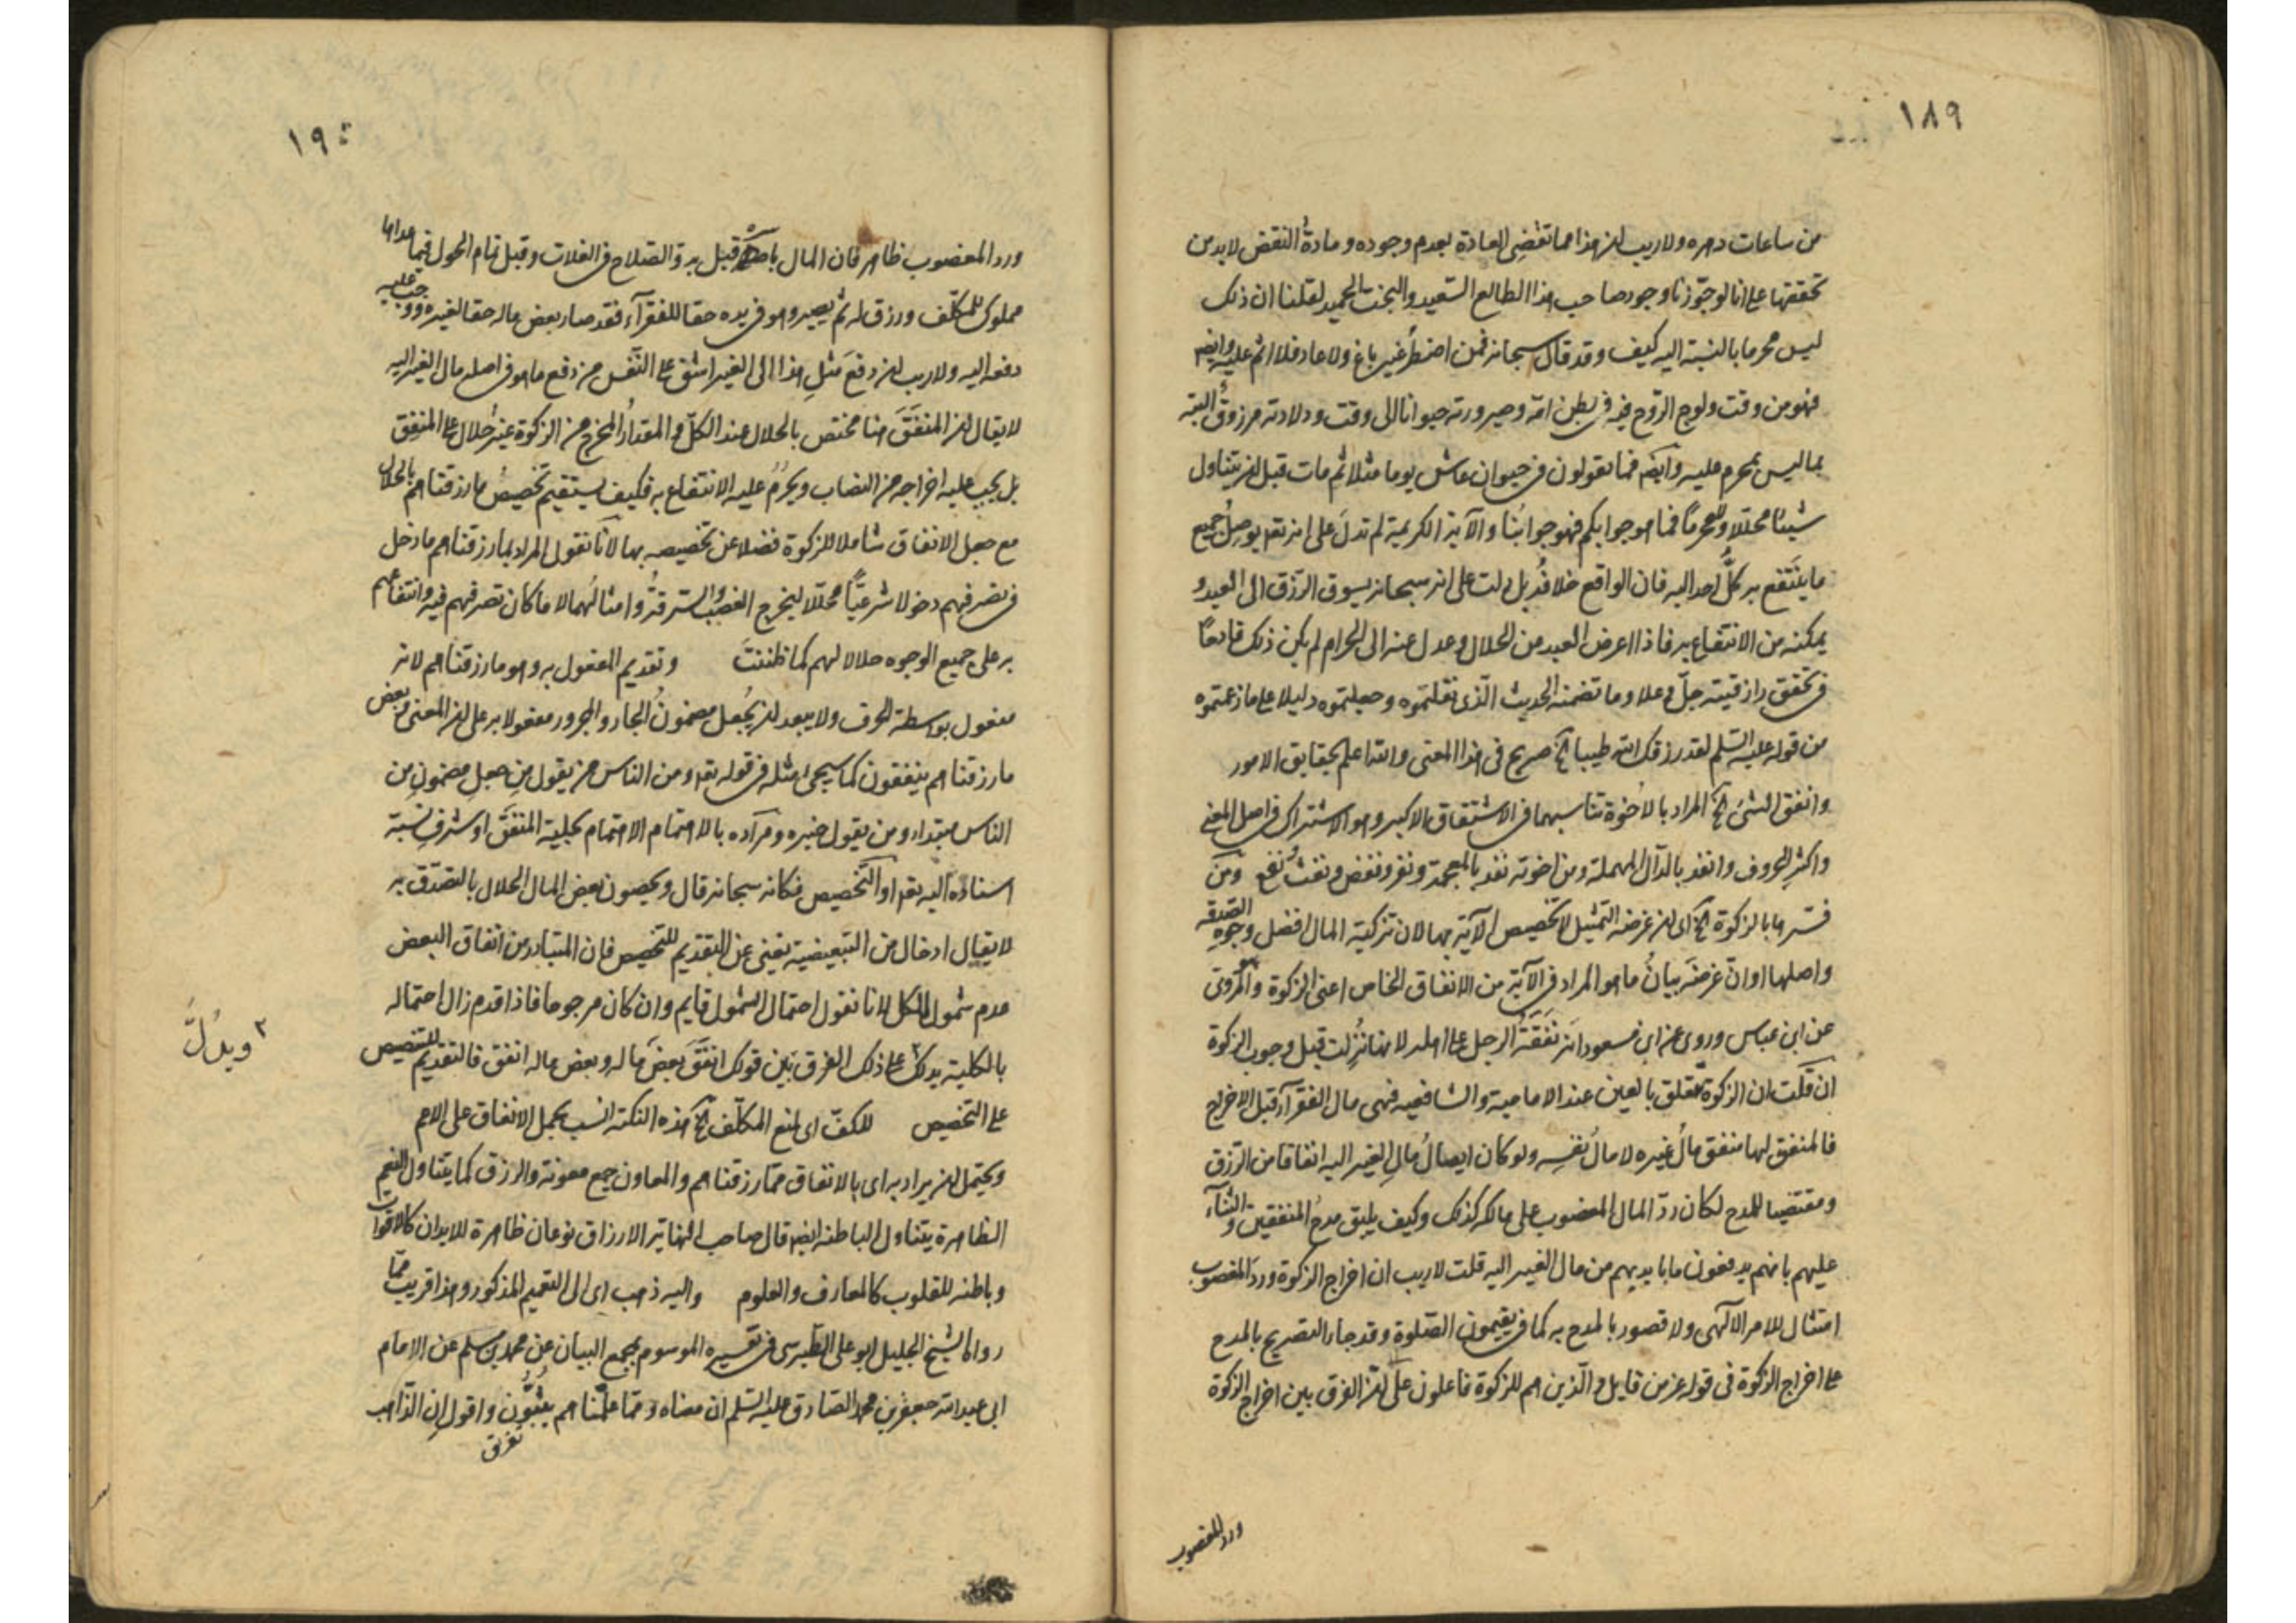 ١٨٩
من ساعات دهره ولا ريب ان هذا مما تقضى العادة بعدم وجوده ومادة النقض لا بد من
تحققها على انا لو جوّزنا وجود صاحب هذا الطالع السّعيد والبخت الحميد لقلنا ان ذلك
ليس محرما بالنسبة اليه كيف وقد قال سبحانه فمن اضطُرّ غير باغ ولا عاد فلا اثم عليه وايضا
فهو من وقت ولوج الرّوح فيه فى بطن امّه وصيرورته حيوانا الى وقت ولادته مرزوقٌ البتة
بما ليس بمحرم عليه وايضا فما تقولون فى حيوان عاش يوما مثلا ثم مات قبل ان يتناول
شيئا محلّلا ولا محرمًا فما هو جوابكم فهو جوابُنا والآية الكريمة لم تدلّ على انه تعا يوصِلُ جميع
ما ينتَفِع به كلُّ احد اليه فان الواقع خلافُه بل دلت على انه سبحانه يسوق الرّزق الى العبد و
يمكنه من الانتفاع به فاذا اعرض العبد من الحلال وعدل عنه الى الحرام لم يكن ذلك قادحًا
فى تحقق رازقيته جلّ وعلا وما تضمنه الحديث الّذى نقلتموه وجعلتموه دليلا على ما زعمتموه
من قوله عليه السّلم لقد رزقك الله طيبا الخ صريح فى هذا المعنى والله اعلم بحقايق الامور
وانفق الشئ الخ المراد بالاخوة تناسبهما فى الاشتقاق الاكبر وهو الاشتراك فى اصل المعنى
واكثر الحروف وانفد بالدّال المهملة ومن اخوته نفذ بالمعجمة ونفر ونفض ونفث نفع ومَن
فسّرها بالزكوة الخ اى ان غرضه التمثيل لا تخصيص الآية بها لان تزكية المال افضل وجوه الصّدقة
واصلها او انّ غرضَه بيانُ ما هو المراد فى الآية من الانفاق الخاص اعنى الزكوة وهو المروىّ
عن ابن عباس وروى عن ابن مسعود انه نَفَقَةُ الرجل على اهله لانها نُزِلت قبل وجوب الزكوة
ان قلت ان الزكوة تتعلق بالعين عند الامامية والشافعيه فهى مال الفقرآء قبل الاخراج
فالمنفق لها منفق مالَ غيره لا مالَ نفسِه ولو كان ايصالُ مالِ الغير اليه انفاقا من الرّزق
ومقتضيا للمدح لكان ردّ المال المغصوب على مالكه كذلك وكيف يليق مدحُ المنفقين والثنآء
عليهم بانهم يدفعون ما بايديهم من مال الغير اليه قلت لا ريب ان اخراج الزكوة وردّ المغصوب
امتثال للامر الآلهى ولا قصور بالمدح به كما فى يقيمون الصّلوة وقد جاء التصريح بالمدح
على اخراج الزكوة فى قوله عز من قايل والّذين هم للزكوة فاعلون على انّ الفرق بين اخراج الزكوة
ورد المغصوب
١٩٠
ورد المغصوب ظاهر فان المال باصله قبل بدوّ الصّلاح فى الغلات وقبل تمام الحول فيما عداها
مملوك للمكلّف ورزق له ثم يصير وهو فى يده حقا للفقرآء فقد صار بعض ماله حقا لغيره ووجب عليه
دفعه اليه ولا ريب ان دفعَ مثلِ هذا الى الغير اشق على النّفس من دفع ما هو فى اصله مال الغير اليه
لا يقال ان المنفَقَ هنا مختص بالحلال عند الكلّ والمقدارُ المخرج من الزكوة غيرُ حلال على المنفِق
بل يجب عليه اخراجه من النصاب ويحرُم عليه الانتفاع به فكيف يستقيم تخصيصُ ما رزقناهم بالحلال
مع جعل الانفاق شاملا للزكوة فضلا عن تخصيصه بها لانّا نقول المراد بما رزقناهم ما دخل
فى تصرفهم دخولا شرعيًّا محلّلا ليخرج الغصبُ والسّرقةُ وامثالُهما لا ما كان تصرفهم فيه وانتفاعهم
به على جميع الوجوه حلالا لهم كما ظننتَ وتقديم المفعول به وهو ما رزقناهم لانه
مفعول بواسطة الحرف ولا يبعد ان يُجعل مضمونُ الجار والمجرور مفعولا به على ان المعنى وبعض
ما رزقناهم ينفقون كما سيجئ مثله فى قوله تعا ومن الناس من يقول مِن جعلِ مضمونِ من
الناس مبتداء ومن يقول خبره ومرآده بالاهتمام الاهتمام بحليّة المنفَق او شرفِ نسبة
اسناده اليه تعا او التّخصيص فكانه سبحانه قال ويخصون بعض المال الحلال بالتصدّق به
لا يقال ادخال من التبعيضية يغنى عن التقديم للتخصيص فان المتبادر من انفاق البعض
عدم شمول الكل لانا نقول احتمال الشمول قايم وان كان مرجوحا فاذا قدم زال احتماله
بالكلية يدلك على ذلك الفرق بين قولك انفَقَ بعضَ ماله وبعض ماله انفق فالتقديم للتنصيص
٢ ويدُلّ
على التخصيص للكفّ اى لمنع المكلّف الخ هذه النكتة انسب بحمل الانفاق على الاعم
ويحتمل ان يراد به اى بالانفاق ممّا رزقناهم والمعاون جمع معونة والرزق كما يتناول النعم
الظاهرة يتناول الباطنة ايضا قال صاحب النهاية الارزاق نوعان ظاهرة للابدان كالاقوات
وباطنه للقلوب كالمعارف والعلوم واليه ذهب اى الى التعميم المذكور وهذا قريب ممّا
رواه الشيخ الجليل ابو على الطبرسى فى تفسيره الموسوم بمجمع البيان عن محمد بن مسلم عن الامام
ابى عبد الله جعفر بن محمد الصّادق عليه السّلم ان معناه ومما علّمناهم يبثّون واقول ان الذّاهب